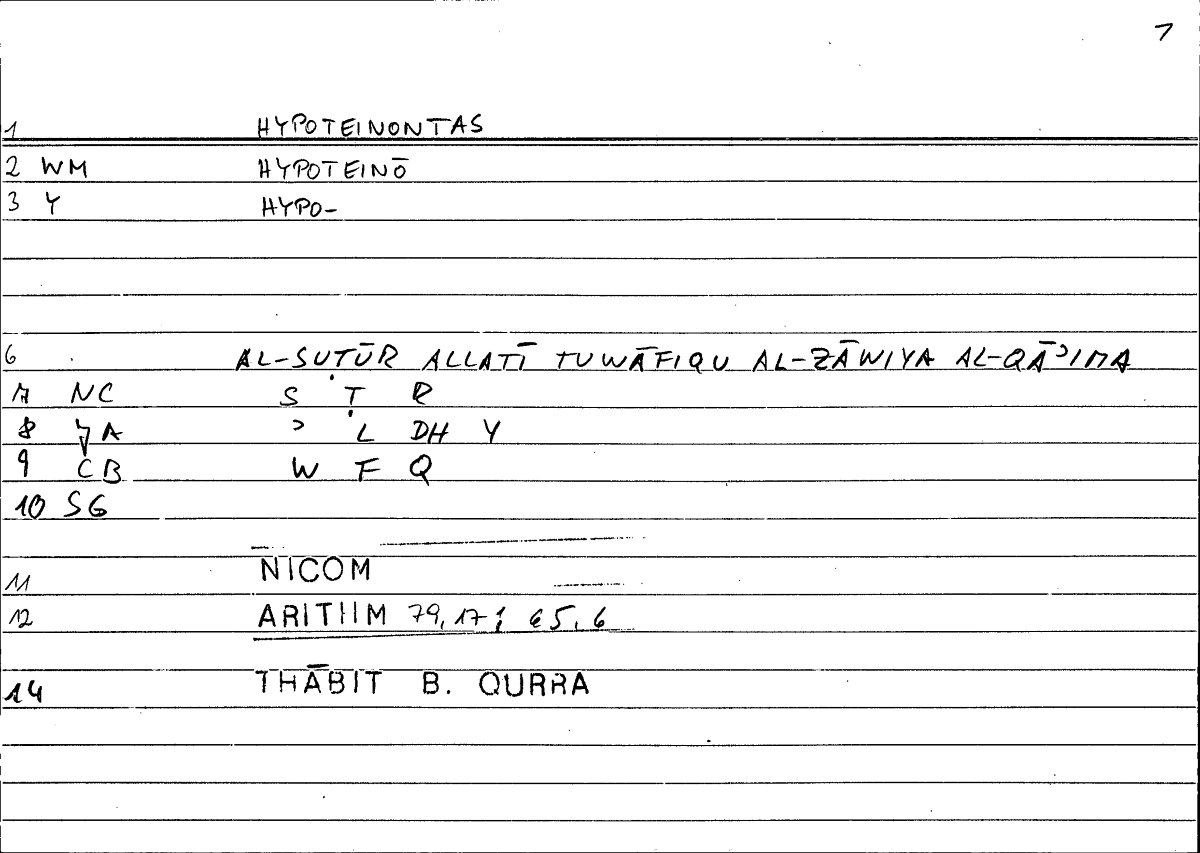 7
1 HYPOTEINONTAS
2 WM HYPOTEINŌ
3 Y HYPO-
6 AL-SUṬŪR ALLATĪ TUWĀFIQU AL-ZĀWIYA AL-QĀʾIMA
7 NC S Ṭ R
8 A ʾ L DH Y
9 CB W F Q
10 SG
11 NICOM
12 ARITHM 79,17; 65,6
14 THĀBIT B. QURRA